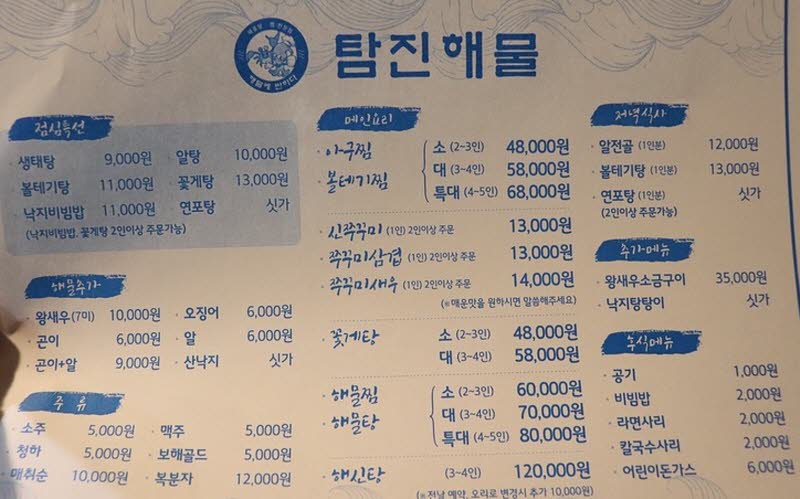 탐진해물
점심특선
생태탕 9,000원 · 알탕 10,000원
· 볼테기탕 11,000원 · 꽃게탕 13,000원
· 낙지비빔밥 11,000원 · 연포탕 싯가
(낙지비빔밥, 꽃게탕 2인이상 주문가능)
해물추가
· 왕새우(7미) 10,000원 · 오징어 6,000원
· 곤이 6,000원 · 알 6,000원
· 곤이+알 9,000원 · 산낙지 싯가
주 류
· 소주 5,000원 · 맥주 5,000원
· 청하 5,000원 · 보해골드 5,000원
매취순 10,000원 · 복분자 12,000원
메인요리
· 아구찜 소 (2~3인) 48,000원
· 볼테기찜 대 (3~4인) 58,000원
특대 (4~5인) 68,000원
· 신쭈꾸미 (1인) 2인이상 주문 13,000원
· 쭈꾸미삼겹 (1인) 2인이상 주문 13,000원
· 쭈꾸미새우 (1인) 2인이상 주문 14,000원
(※매운맛을 원하시면 말씀해주세요)
· 꽃게탕 소 (2~3인) 48,000원
대 (3~4인) 58,000원
· 해물찜 소 (2~3인) 60,000원
· 해물탕 대 (3~4인) 70,000원
특대 (4~5인) 80,000원
· 해신탕 (3~4인) 120,000원
(※전날 예약, 오리로 변경시 추가 10,000원)
저녁식사
· 알전골 (1인분) 12,000원
· 볼테기탕 (1인분) 13,000원
· 연포탕 (1인분) 싯가
(2인이상 주문가능)
추가메뉴
· 왕새우소금구이 35,000원
· 낙지탕탕이 싯가
후식메뉴
· 공기 1,000원
· 비빔밥 2,000원
· 라면사리 2,000원
· 칼국수사리 2,000원
· 어린이돈가스 6,000원